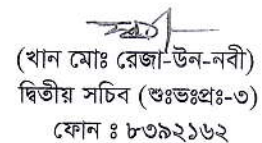 (খান মোঃ রেজা-উন-নবী)
দ্বিতীয় সচিব (শুঃভঃপ্রঃ-৩)
ফোন ঃ ৮৩৯২১৬২